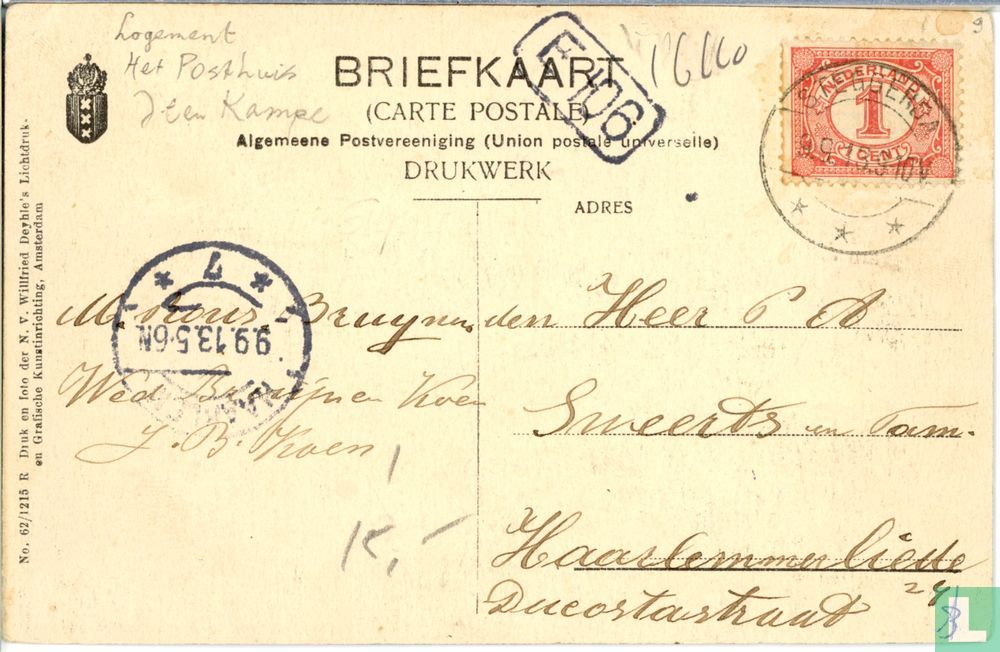 Logement
Het Posthuis
J ten Kampe
BRIEFKAART
(CARTE POSTALE)
Algemeene Postvereeniging (Union postale universelle)
DRUKWERK
ADRES
F 106
16110
9
NEDERLAND
1
1 CENT
9.9.13.5-6N
7
Bruynen
Wed Bruijnen Koen
J. B. Koen
den Heer C A
Sweerts en Fam.
Haarlemmerliede
Ducostastraat
24
No. 62/1215 R Druk en foto der N. V. Willfried Deyhle's Lichtdruk-
en Grafische Kunstinrichting, Amsterdam
L